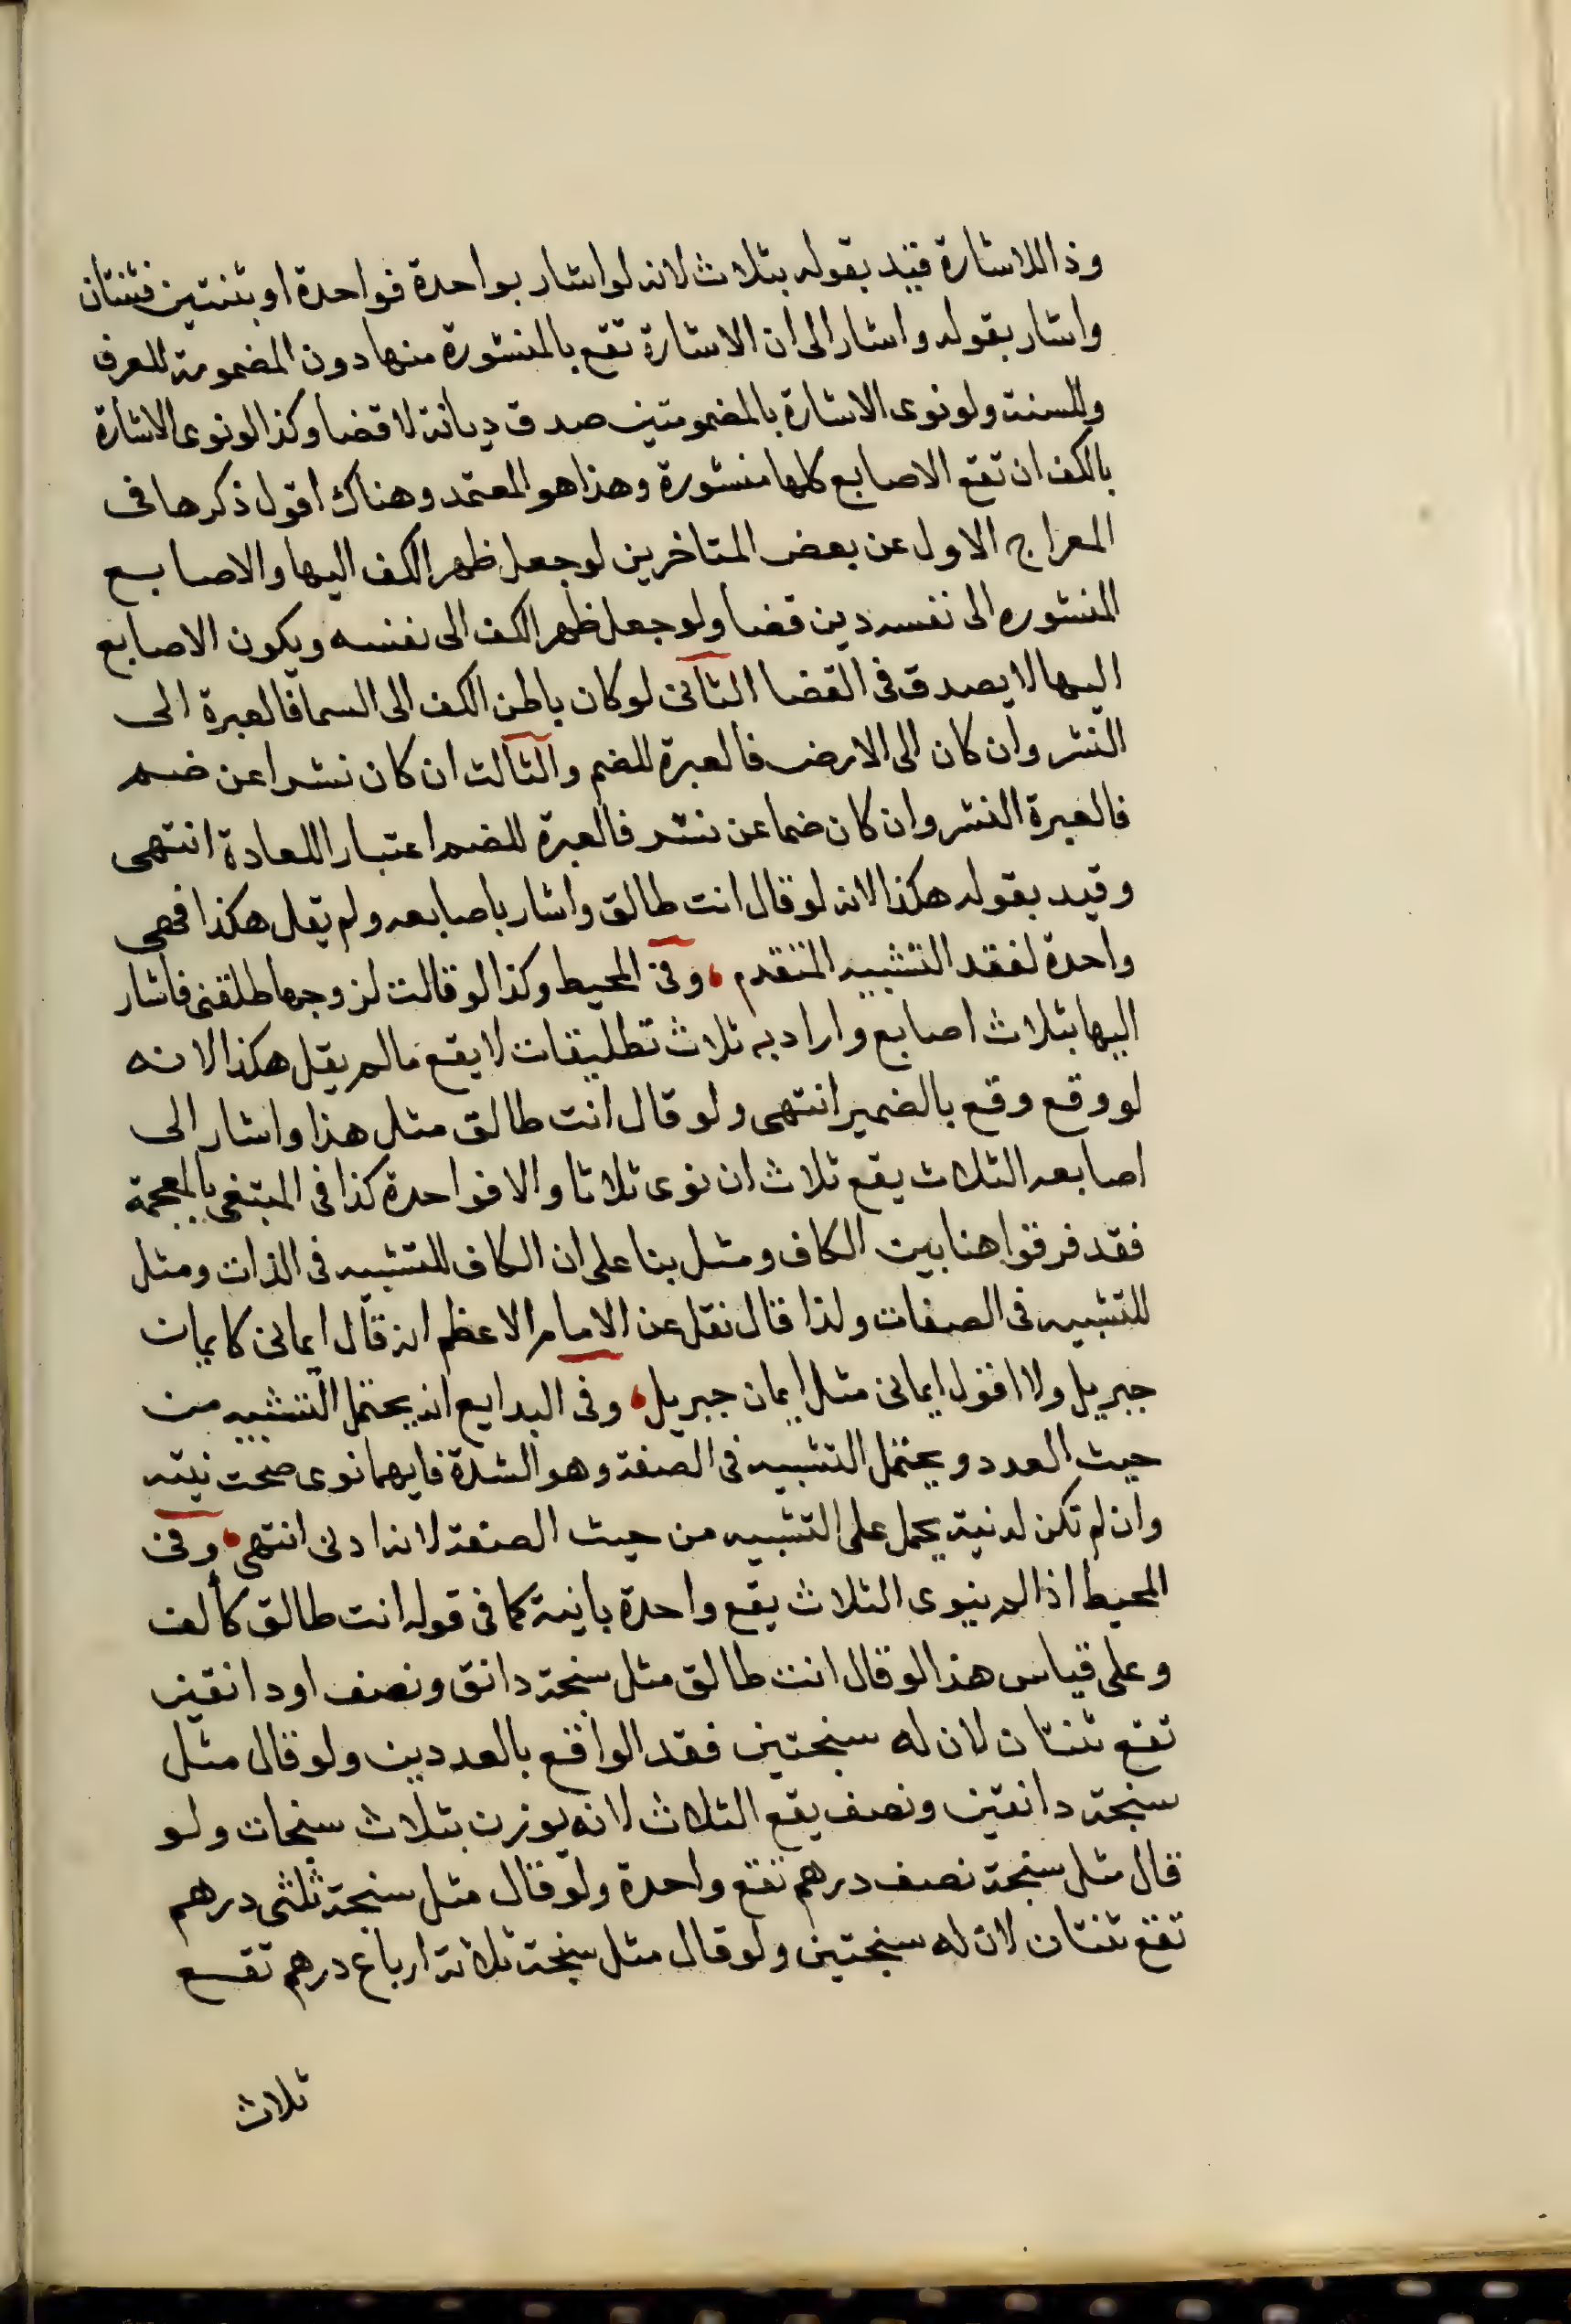 وذا للاشارة قيد بقوله بثلاث لانه لو اشار بواحدة فواحدة او بثنتين فثنتان
واشار بقوله واشار الى ان الاشارة تقع بالمنشورة منها دون المضمومة للعرف
وللسنة ولو نوى الاشارة بالمضمومتين صدق ديانة لا قضا وكذا لو نوى الاشارة
بالكف ان تقع الاصابع كلها منشورة وهذا هو المعتمد وهناك اقول ذكرها فى
المعراج الاول عن بعض المتاخرين لو جعل ظهر الكف اليها والاصابع
المنشوره الى نفسه دين قضا ولو جعل ظهر الكف الى نفسه ويكون الاصابع
اليها لا يصدق فى القضا الثانى لو كان باطن الكف الى السما فالعبرة الى
النشر وان كان الى الارض فالعبرة للضم والثالث ان كان نشرا عن ضم
فالعبرة النشر وان كان ضما عن نشر فالعبرة للضم اعتبارا للعادة انتهى
وقيد بقوله هكذا لانه لو قال انت طالق واشار باصابعه ولم يقل هكذا فهى
واحدة لفقد التشبيه المتقدم وفى المحيط وكذا لو قالت لزوجها طلقنى فاشار
اليها بثلاث اصابع واراد به ثلاث تطليقات لا يقع مالم يقل هكذا لانه
لو وقع وقع بالضمير انتهى ولو قال انت طالق مثل هذا واشار الى
اصابعه الثلاث يقع ثلاث ان نوى ثلاثا والا فواحدة كذا فى المبتغى بالمعجمة
فقد فرقوا هنا بين الكاف ومثل بنا على ان الكاف للتشبيه فى الذات ومثل
للتشبيه فى الصفات ولذا قال نقل عن الامام الاعظم انه قال ايمانى كايمان
جبريل ولا اقول ايمانى مثل ايمان جبريل وفى البدايع انه يحتمل التشبيه من
حيث العدد ويحتمل التشبيه فى الصفة وهو الشدة فايهما نوى صحت نيته
وان لم تكن له نية يحمل على التشبيه من حيث الصفة لانه ادنى انتهى وفى
المحيط اذا لم ينوى الثلاث يقع واحدة باينة كما فى قوله انت طالق كألف
وعلى قياس هذا لو قال انت طالق مثل سنجة دانق ونصف او دانقين
تقع ثنتان لان له سنجتين فقد الواقع بالعددين ولو قال مثل
سنجة دانقين ونصف يقع الثلاث لانه يوزن بثلاث سنجات ولو
قال مثل سنجة نصف درهم تقع واحدة ولو قال مثل سنجة ثلثى درهم
تقع ثنتان لان له سنجتين ولو قال مثل سنجة ثلاثة ارباع درهم تقع
ثلاث